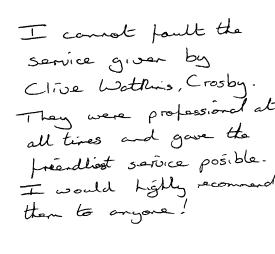 I cannot fault the
service given by
Clive Watkins, Crosby.
They were professional at
all times and gave the
friendliest service posible.
I would highly recommend
them to anyone!